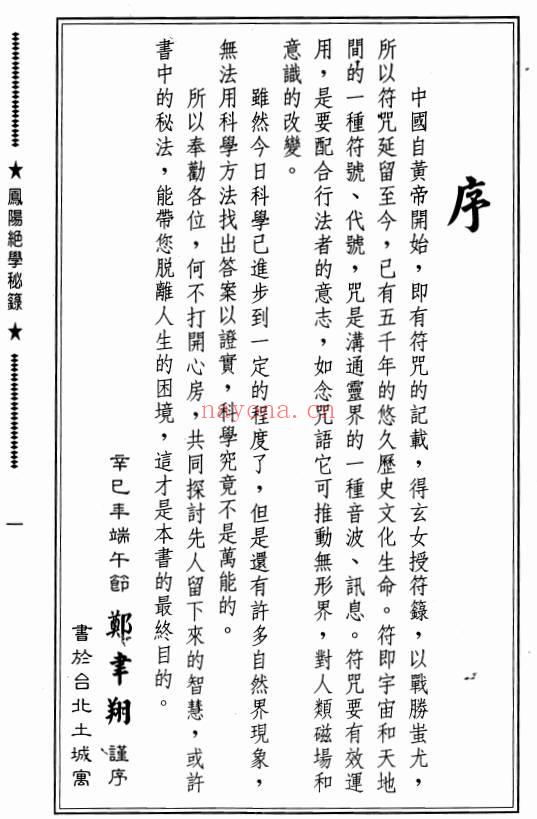 序
中國自黃帝開始，即有符咒的記載，得玄女授符籙，以戰勝蚩尤，
所以符咒延留至今，已有五千年的悠久歷史文化生命。符即宇宙和天地
間的一種符號、代號，咒是溝通靈界的一種音波、訊息。符咒要有效運
用，是要配合行法者的意志，如念咒語它可推動無形界，對人類磁場和
意識的改變。
雖然今日科學已進步到一定的程度了，但是還有許多自然界現象，
無法用科學方法找出答案以證實，科學究竟不是萬能的。
所以奉勸各位，何不打開心房，共同探討先人留下來的智慧，或許
書中的秘法，能帶您脫離人生的困境，這才是本書的最終目的。
辛巳年端午節 鄭聿翔 謹序
書於台北土城寓
★ 鳳陽絕學秘籙 ★
一
nayona.cn